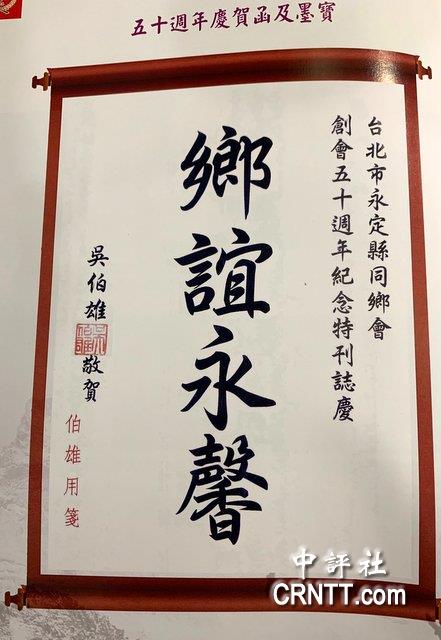 五十週年慶賀函及墨寶
台北市永定縣同鄉會
創會五十週年紀念特刊誌慶
鄉誼永馨
吳伯雄敬賀
伯雄用箋
中評社
CRNTT.com